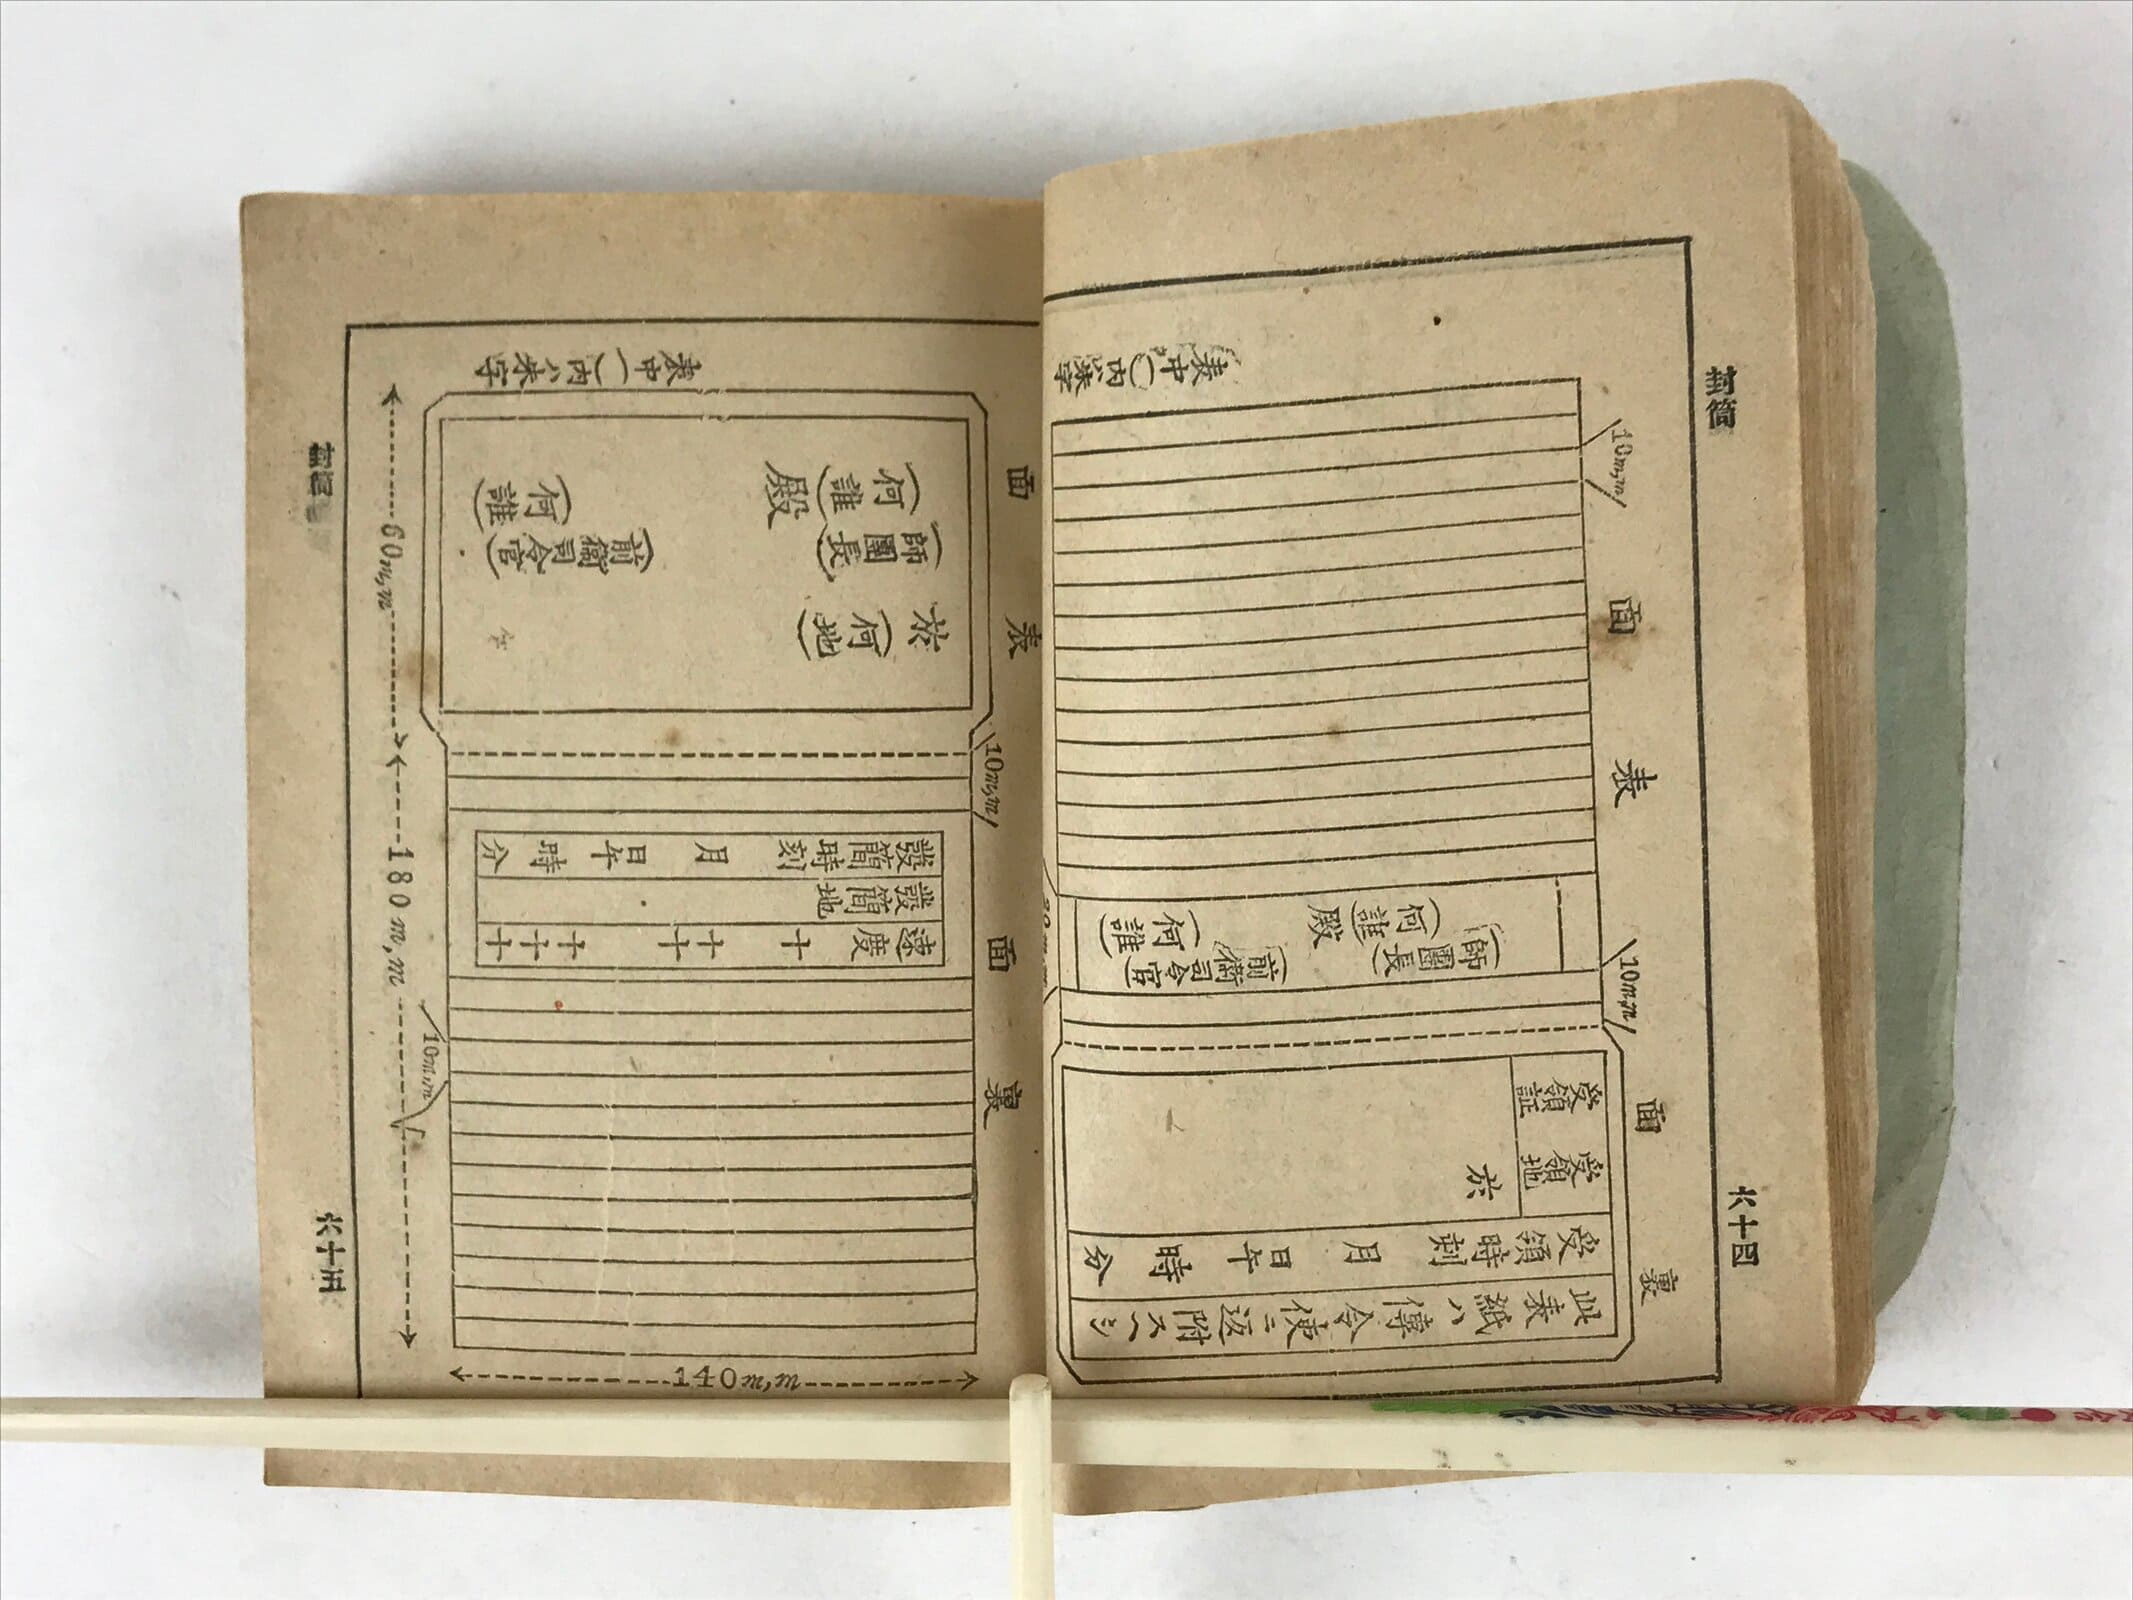 封筒
六十四
表中( )内ハ朱字
10m,m
表面
(師團長)
(何誰)
殿
(前衛司令官)
(何誰)
10m,m
裏面
受領証
受領地
於
受領時刻 月 日 年 時 分
此表紙ハ傳令使ニ返附スヘシ
封筒
六十五
表中( )内ハ朱字
表面
於(何地)
(師團長)
(何誰)
殿
(前衛司令官)
(何誰)
60m,m
10m,m
裏面
發簡時刻 月 日 年 時 分
發簡地
速度 十 十十 十十十
180m,m
10m,m
140m,m